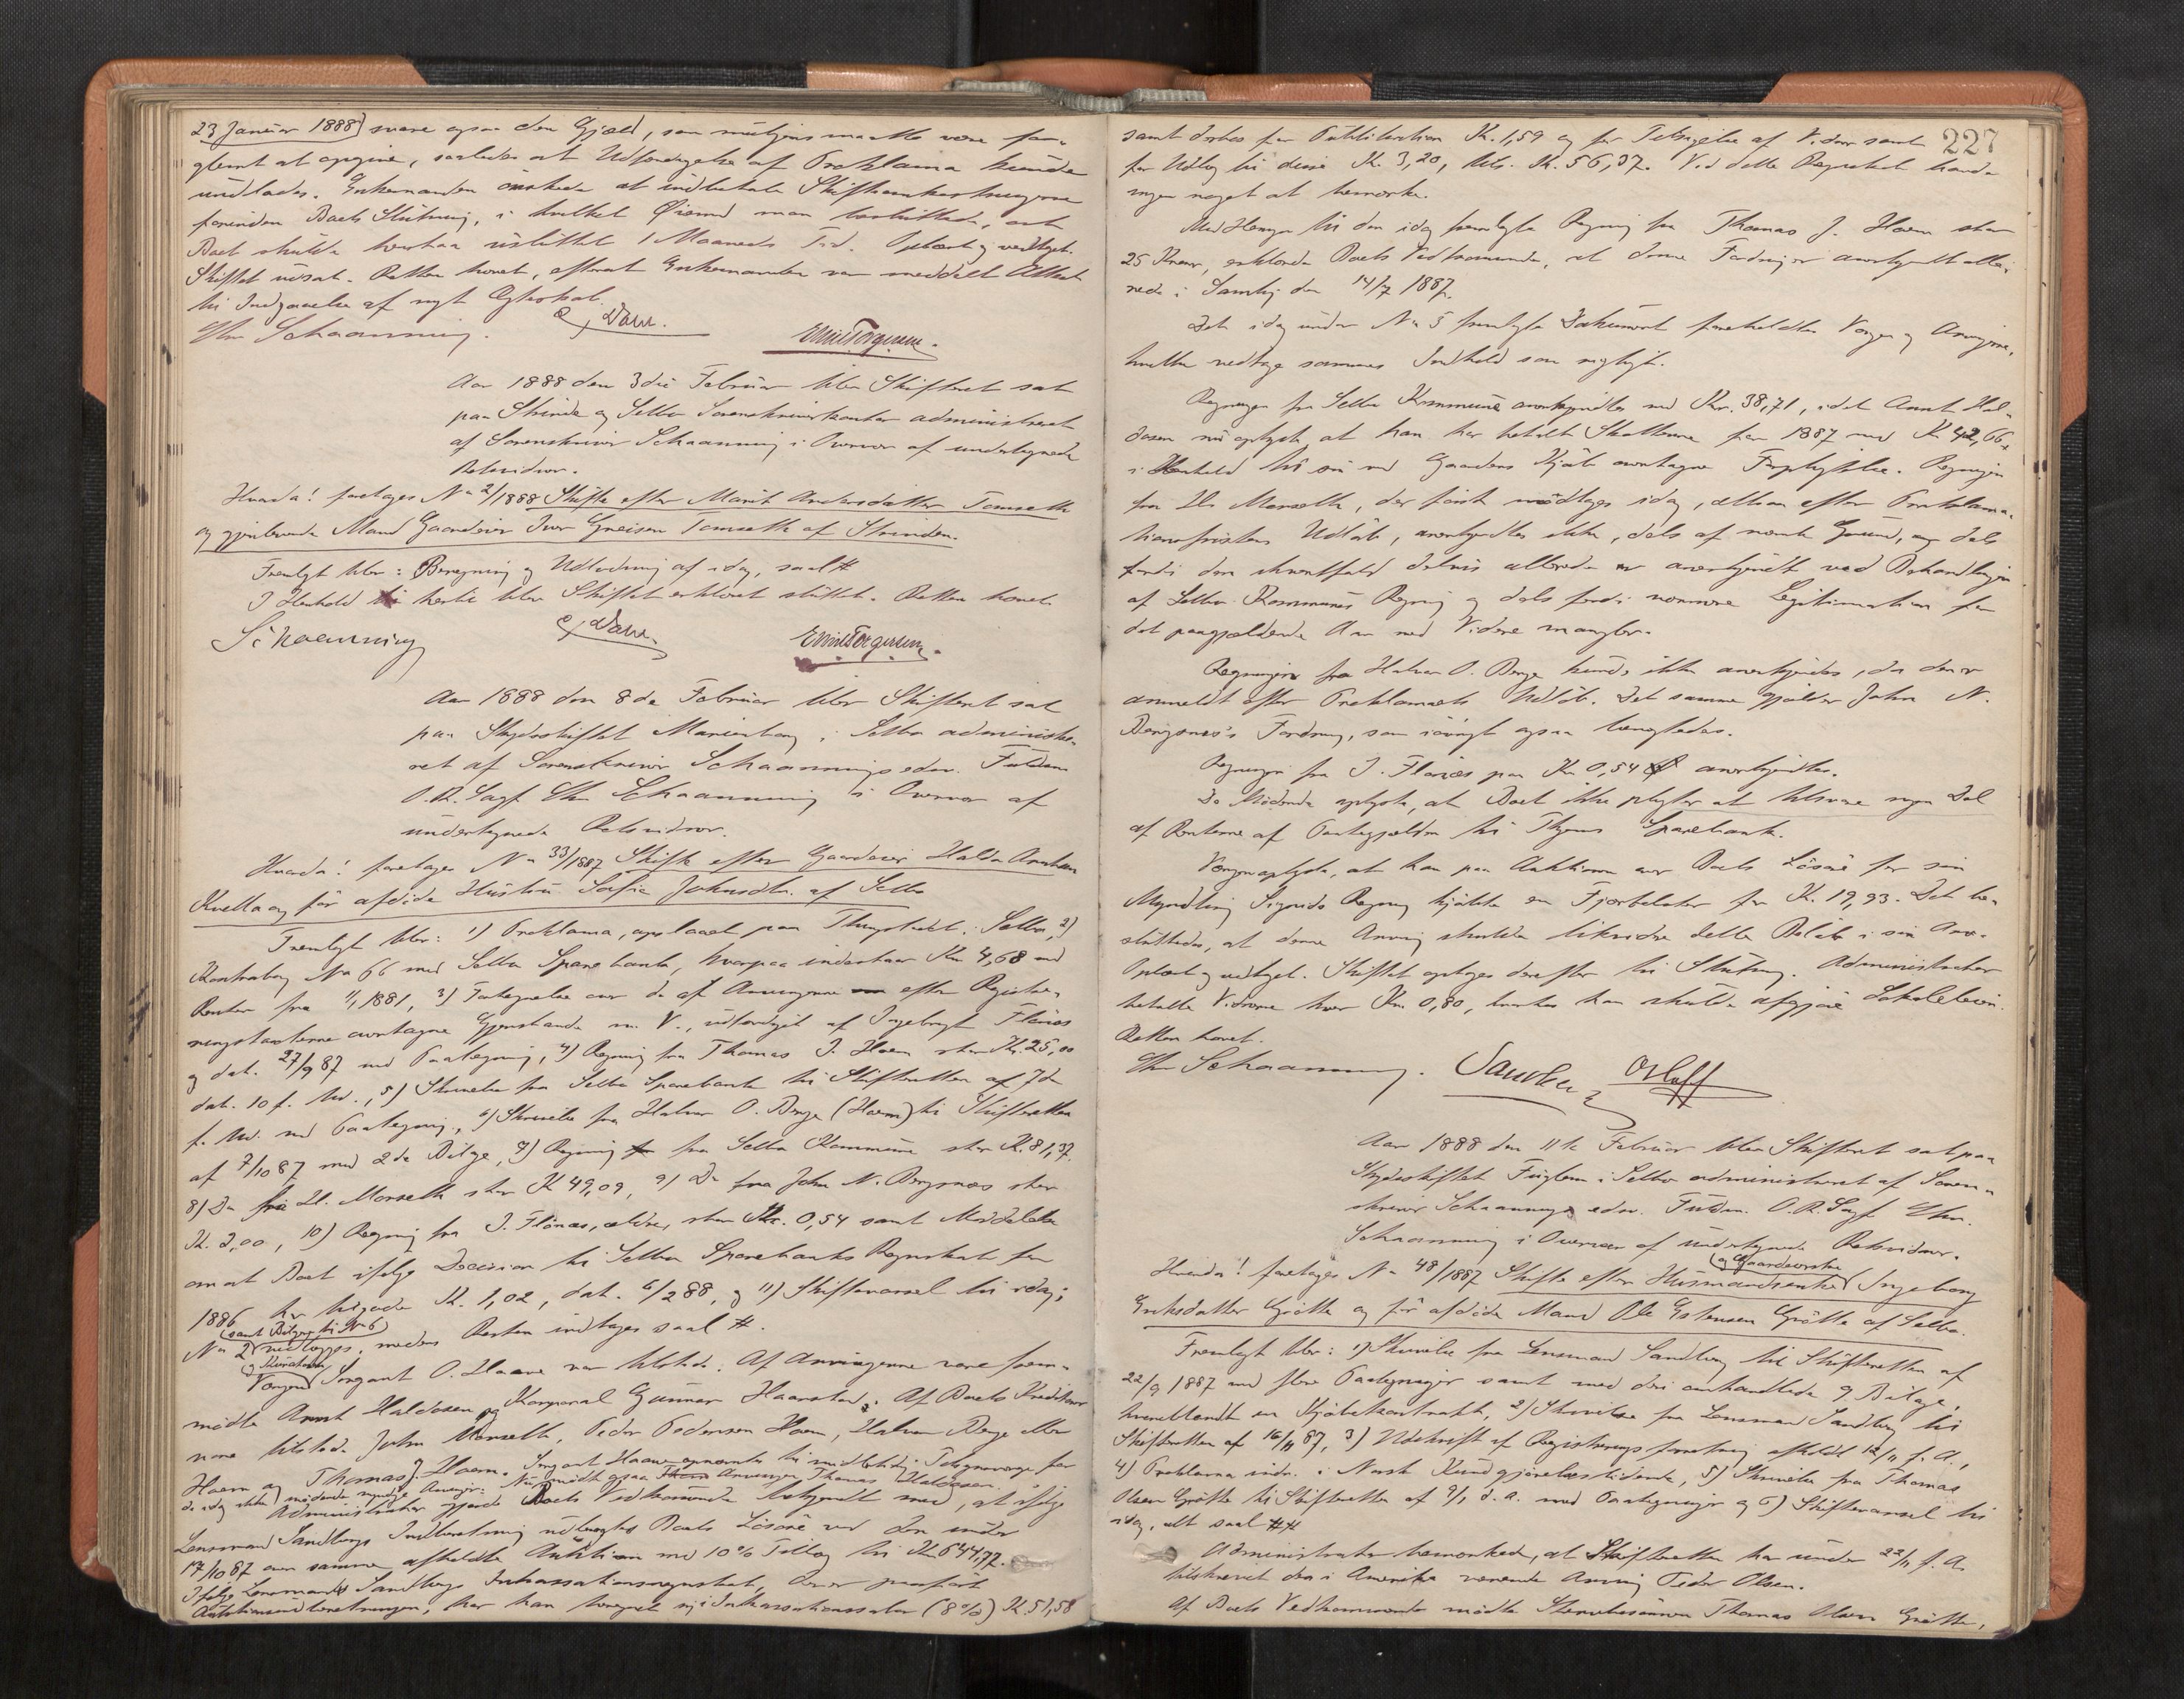 23 Januar 1888) svare ogsaa den Gjæld, som muligens maatte være for-
glemt at opgive, saaledes at Udfærdigelse af Proklama kunde
undlades. Enkemanden önskede at indbetale Skifteomkostningerne
forinden Boets Slutning, i hvilket Öiemed man besluttede, at
Boet skulde bero paa uslüttet 1 Maaneds Tid. Oplæst og vedtaget.
Skiftet udsat. Retten hævet, efterat Enkemanden var meddelt Attest
til Indgaaelse af nyt Ægteskab.
Chr Schaanning. Emil Torgersen.
Aar 1888 den 3die Februar blev Skifteret sat
paa Strinde og Selbu Sorenskriverkontor administreret
af Sorenskriver Schaanning i Overvær af undertegnede
Retsvidner.
Hvorda! foretoges No 2/1888 Skifte efter Marit Andersdatter Tomseth
og gjenlevende Mand Gaardeier Iver Tomseth af Strinden.
Fremlagt blev: Beregning og Udlodning af idag, saal #
I Henhold til hertil blev Skiftet erklæret sluttet. Retten hævet
Schaanning Emil Torgersen.
Aar 1888 den 8de Februar blev Skifteret sat
paa Skydsskiftet Marienborg i Selbu administre-
ret af Sorenskriver Schaannings edsv. Fuldm.
O.R. Sagf. Chr Schaanning i Overvær af
undertegnede Retsvidner.
Hvorda! foretoges No 33/1887 Skifte efter Gaardeier Haldo Arntsen
Kvello og för afdöde Hustru Sofie Johnsdtr. af Selbu
Fremlagt blev: 1) Proklama, opslaaet paa Thingstedet i Selbu, 2)
Kontrabog No 66 med Selbu Sparebank, hvorpaa indestaar Kr 4,68 med
Renter fra 1/1 1881, 3) Fortegnelse over de af Arvingerne efter Registre-
ringstaxterne overtagne Gjenstande m. V., udfærdiget af Ingebrigt Flönes
og dat. 27/9 87 med Paategning, 4) Regning fra Thomas J. Hoem stor Kr. 25,00
dat. 10 f. Md., 5) Skrivelse fra Selbu Sparebank til Skifteretten af 7de
f. Md. med Paategning, 6) Skrivelse fra Halvor O. Berge (Hoem) til Skifteretten
af 7/10 87 med 2de Bilage, 7) Regning fra Selbu Kommune stor K. 81,37.
8) Do fra Ul. Morseth stor K 49,09, 9) Do fra John N. Bergsnes stor
K. 2,00, 10) Regning fra J. Flönæs, ældre, stor Kr. 0,54 samt Meddelelse
om at Boet ifølge Decision til Selbu Sparebanks Regnskab for
1886 har tilgode K. 1,02, dat. 6/2 88, og 11) Skiftevarsel til idag;
(samt Bilagene til No 6)
No 2 vedlægges, medens Resten indtages saal #.
og Kurator
Vergen Sergeant O. Haave var tilstede. Af Arvingerne vare frem-
mödte Arnt Haldosen og Korporal Gunnar Haarstad. Af Boets Kreditorer
vare tilstede John Morseth, Peder Pedersen Hoem, Halvor Berge eller
Hoem og Thomas J. Hoem. Sergeant Haave opnævntes til midlertidig Tilsynsværge for
de idag ikke mödende myndige Arvinger. Nu mödte ogsaa Arvingen Thomas Haldosen.
Administrator gjorde Boets Vedkommende bekjendt med, at ifølge
Lensmand Sandbergs Indberetning udbragtes Boets Lösöre ved den under
17/10 87 over samme afholdte Auktion med 10% Tillæg til Kr 644,72.
Ifølge Lensmand Sandbergs Inkassationsregnskab, der er paaført
Auktionsindberetningen, har han beregnet sig i Inkassationssalær (8%) K. 51,58
227
samt Porto for Publikation K. 1,59 og for Tilsigelse af Vidner samt
for Udlæg til disse K. 3,20, tils. K. 56,37. Ved dette Regnskab havde
ingen noget at bemærke.
Med Hensyn til den idag fremlagte Regning fra Thomas J. Hoem stor
25 Kroner, erklærede Boets Vedkommende, at denne Fordring er anerkjendt alle-
rede i Samling den 14/7 1887.
Det idag under No 5 fremlagte Dokument foreholdtes Vergen og Arvingerne,
hvilke vedtoge sammes Indhold som rigtigt.
Regningen fra Selbu Kommune anerkjendtes med Kr. 38,71, idet Arnt Hal-
dosen nu oplyste, at han har betalt Skatterne for 1887 med K 42,66,
i Henhold til sin ved Gaardens Kjöb overtagne Forpligtelse. Regningen
fra Ul. Morseth, der först modtoges idag, altsaa efter Proklama-
tionsfristens Udlöb, anerkjendtes ikke, dels af nævnte Grund, og dels
fordi den ihvertfald delvis allerede er anerkjendt ved Behandlingen
af Selbu Kommunes Regning og dels fordi nærmere Legitimation for
det paagjældende Aar med Videre mangler.
Regningen fra Halvor O. Berge kunde ikke anerkjendes, da den er
anmeldt efter Proklamaets Udlöb. Det samme gjælder John N.
Bergsnes's Fordring, som iøvrigt ogsaa benegtedes.
Regningen fra J. Flönæs paa Kr 0,54 anerkjendtes.
De Mödende oplyste, at Boet ikke pligter at tilsvare nogen Del
af Renterne af Panteggjælden til Thyens Sparebank.
Vergen oplyste, at han paa Auktionen over Boets Lösöre for sin
Myndling Sigrids Regning kjöbte en Fjærbolster for K. 19,93. Det be-
sluttedes, at denne Arving skulde likvidere dette Belöb i sin Arv.
Oplæst og vedtaget. Skiftet optoges derefter til Slutning. Administrator
betalte Vidnerne hver Kr. 0,80, hvorhos han skulde afgjöre Lokaleleien.
Retten hævet.
Chr Schaanning.
Aar 1888 den 11te Februar blev Skifteret sat paa
Skydsskiftet Fuglem i Selbu administreret af Soren-
skriver Schaannings edsv. Fuldm. O.R. Sagf. Chr.
Schaanning i Overvær af undertegnede Retsvidner.
og Gaardeierske
Hvorda! foretoges No 48/1887 Skifte efter Husmandsenke Ingeborg
Eriksdatter Grötte og för afdöde Mand Ole Estensen Grötte af Selbu.
Fremlagt blev: 1) Skrivelse fra Lensmand Sandberg til Skifteretten af
22/9 1887 med flere Paategninger samt med deri omhandlede 9 Bilage,
hvoriblandt en Kjöbekontrakt, 2) Skrivelse fra Lensmand Sandberg til
Skifteretten af 16/11 87, 3) Udskrift af Registreringsforretning afholdt 12/11 f. A.,
4) Proklama indr. i Norsk Kundgjörelsestidende, 5) Skrivelse fra Thomas
Olsen Grötte til Skifteretten af 9/1 d. A. med Paategninger og 6) Skiftevarsel til
idag, alt saal ##
Administrator bemærkede, at Skifteretten har under 22/11 f. A.
tilskrevet den i Amerika værende Arving Peder Olsen.
Af Boets Vedkommende mödte Stervbosönnen Thomas Olsen Grötte,